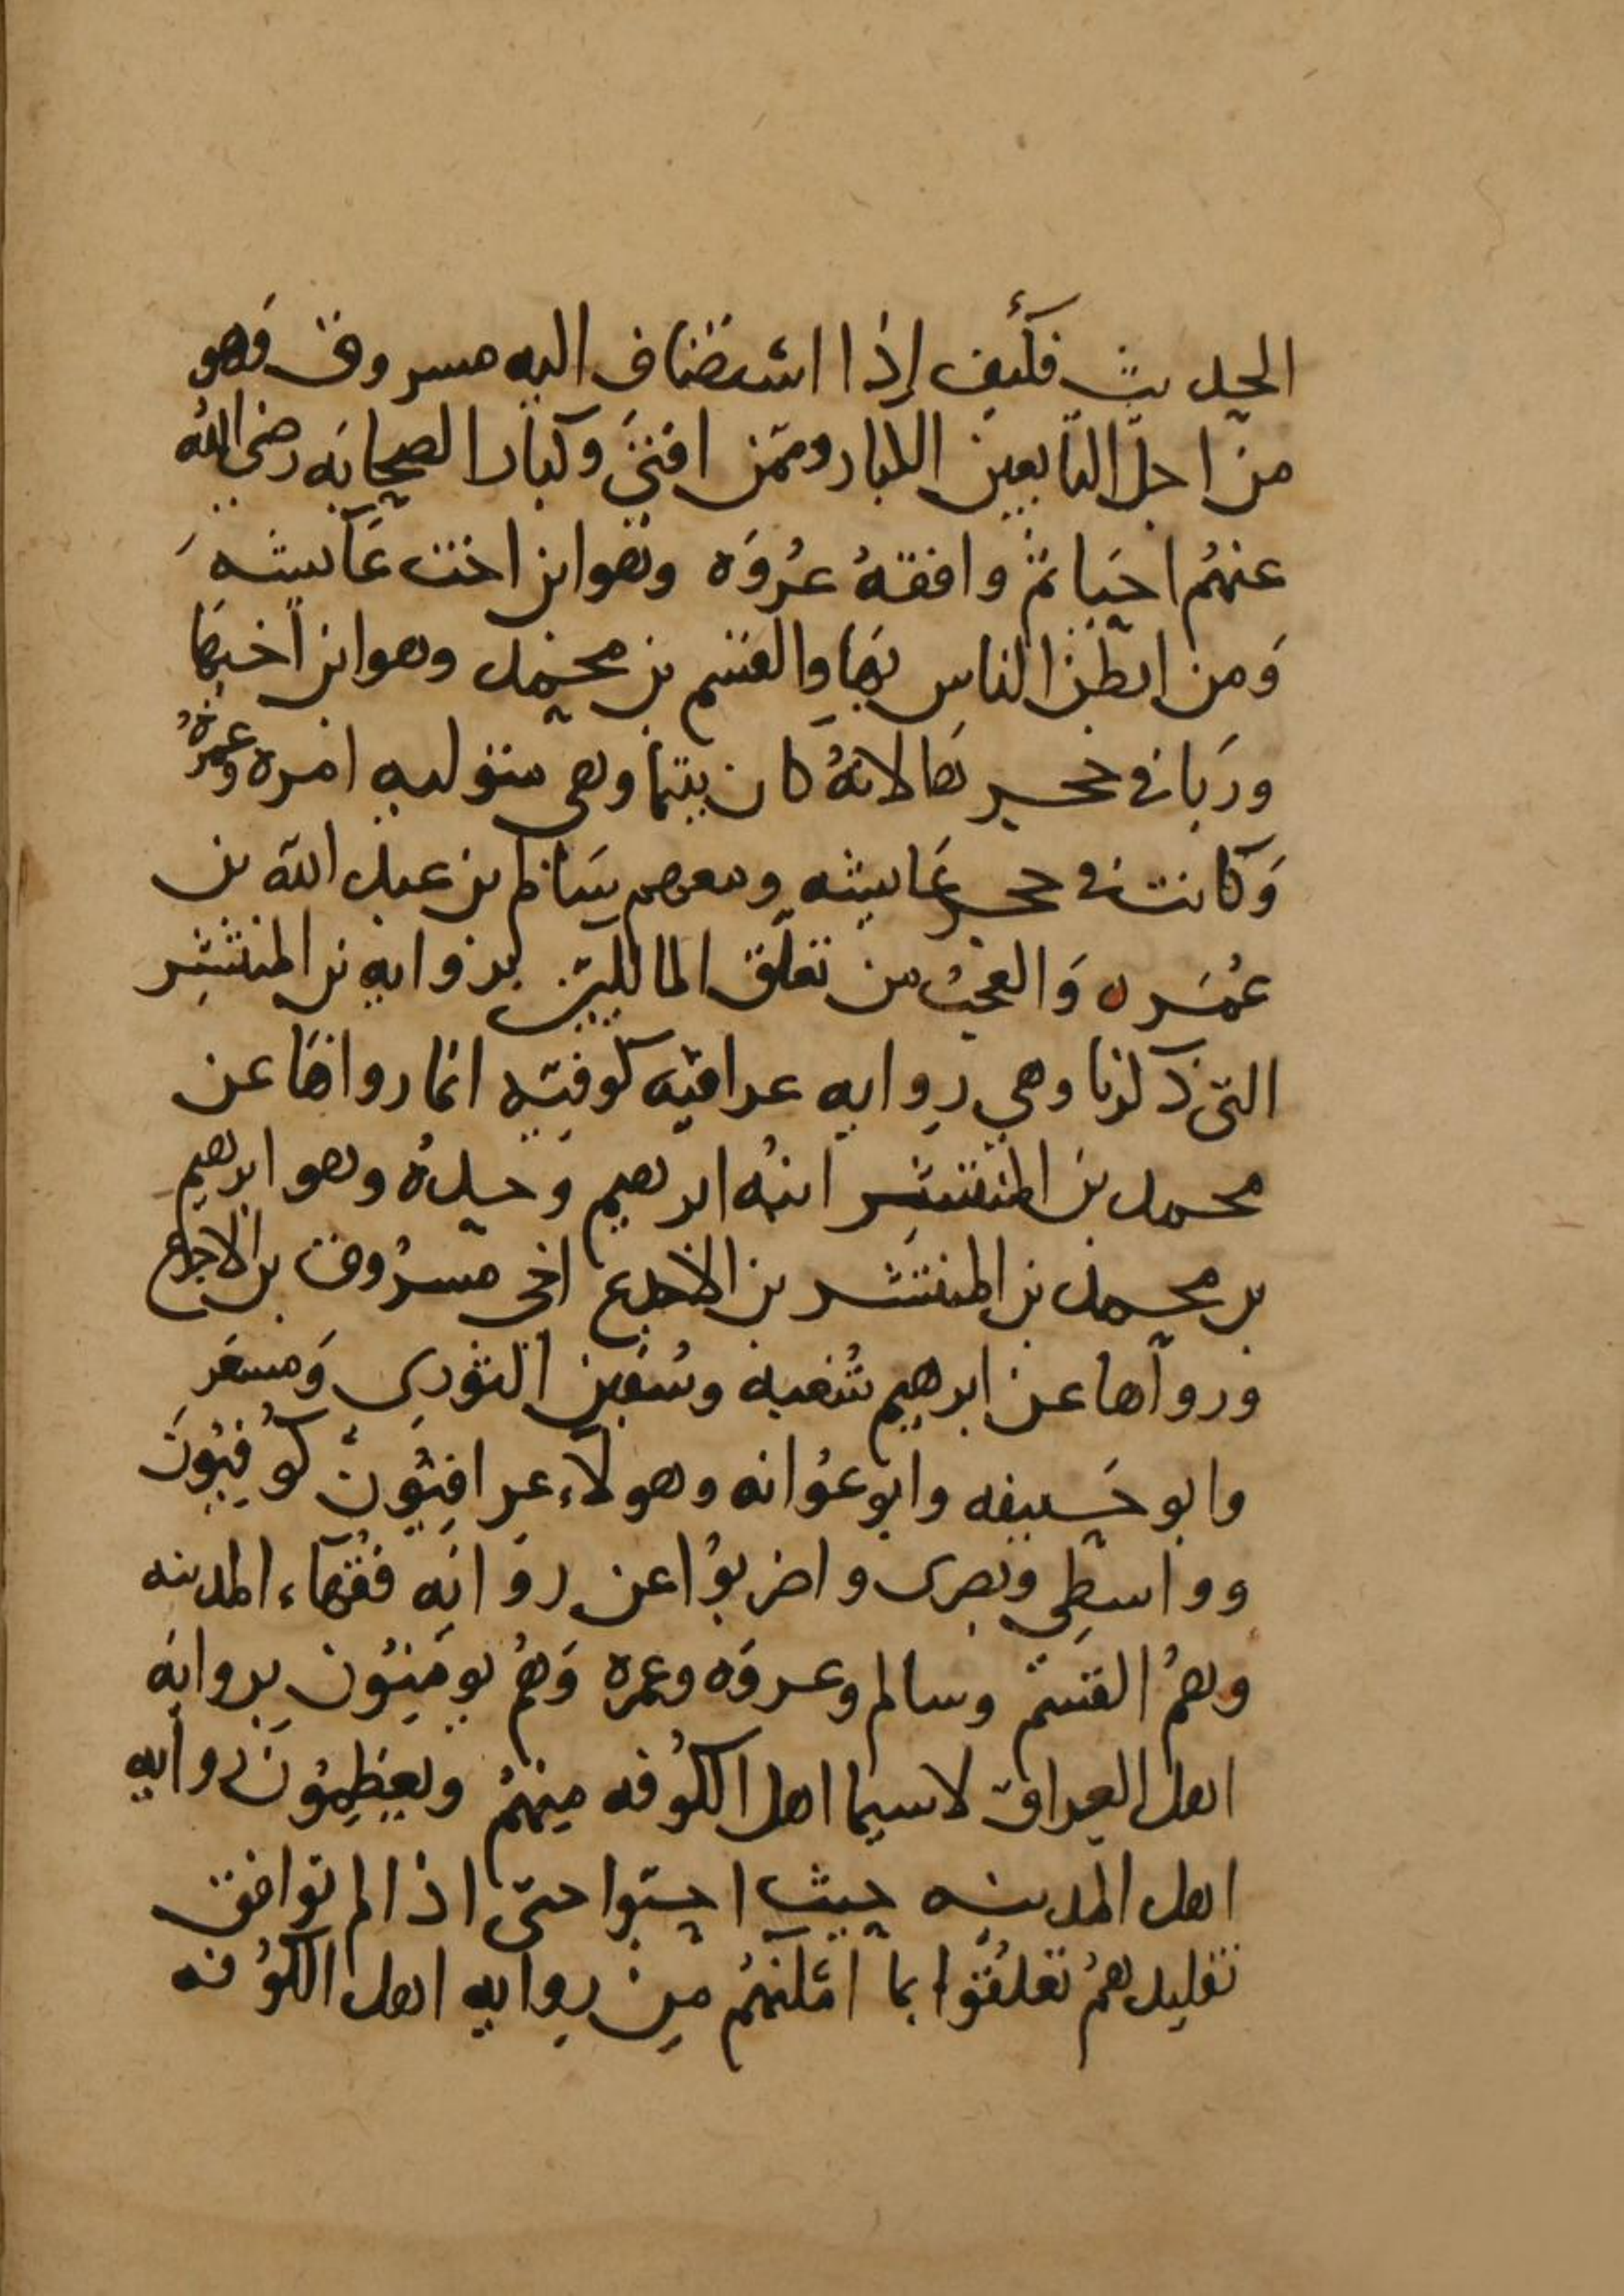 الحديث فكيف إذا استضاف اليه مسروق فهو
من اجل التابعين الكبار وممن افتى وكبار الصحابه رضي الله
عنهم احيا ثم وافقه عروه وهو ابن اخت عايشه
ومن ابطن الناس بها والقسم بن محمد وهو ابن اخيها
وربا في حجرها لانه كان يتيما وهي متوليه امره وعمرة
وكانت في حجر عايشه ومعهم سالم بن عبد الله بن
عمر ه والعجب من تعلق المالكيين بروايه بن المنتشر
التي ذكرنا وهي روايه عراقيه كوفيه انما رواها عن
محمد بن المنتشر ابنه ابرهيم وحده وهو ابرهيم
بن محمد بن المنتشر بن الاجدع اخي مسروق بن الاجدع
ورواها عن ابرهيم شعبه وسفين الثوري ومسعر
وابو حنيفه وابو عوانه وهولاء عراقيون كوفيون
وواسطي وبصري واضربوا عن روايه فقهاء المدينه
وهم القسم وسالم وعروه وعمره وهم يومنون بروايه
اهل العراق لاسيما اهل الكوفه منهم ويعظمون روايه
اهل المدينه حيث احبوا حتى اذا لم توافق
تقليدهم تعلقوا بما امكنهم من روايه اهل الكوفه